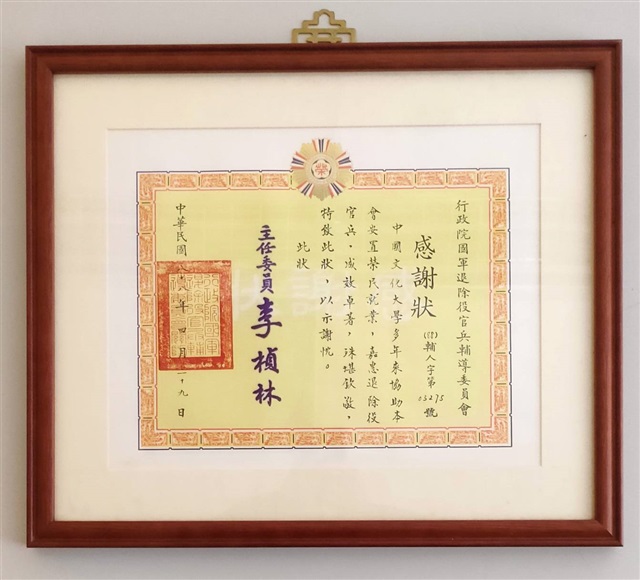 行政院國軍退除役官兵輔導委員會
感謝狀
輔人字第
03275
號
中國文化大學多年來協助本
會安置榮民就業，嘉惠退除役
官兵，成效卓著，殊堪欽敬，
特發此狀，以示謝忱。
此狀
主任委員 李楨林
中華民國 八 年 四 月 二十九 日
榮